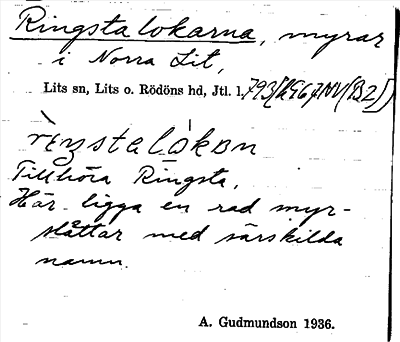 Ringstalokarna, myrar
i Norra Lit,
Lits sn, Lits o. Rödöns hd, Jtl. l.
Tillhöra Ringsta.
Här ligga en rad myr-
slåttar med särskilda
namn.
A. Gudmundson 1936.